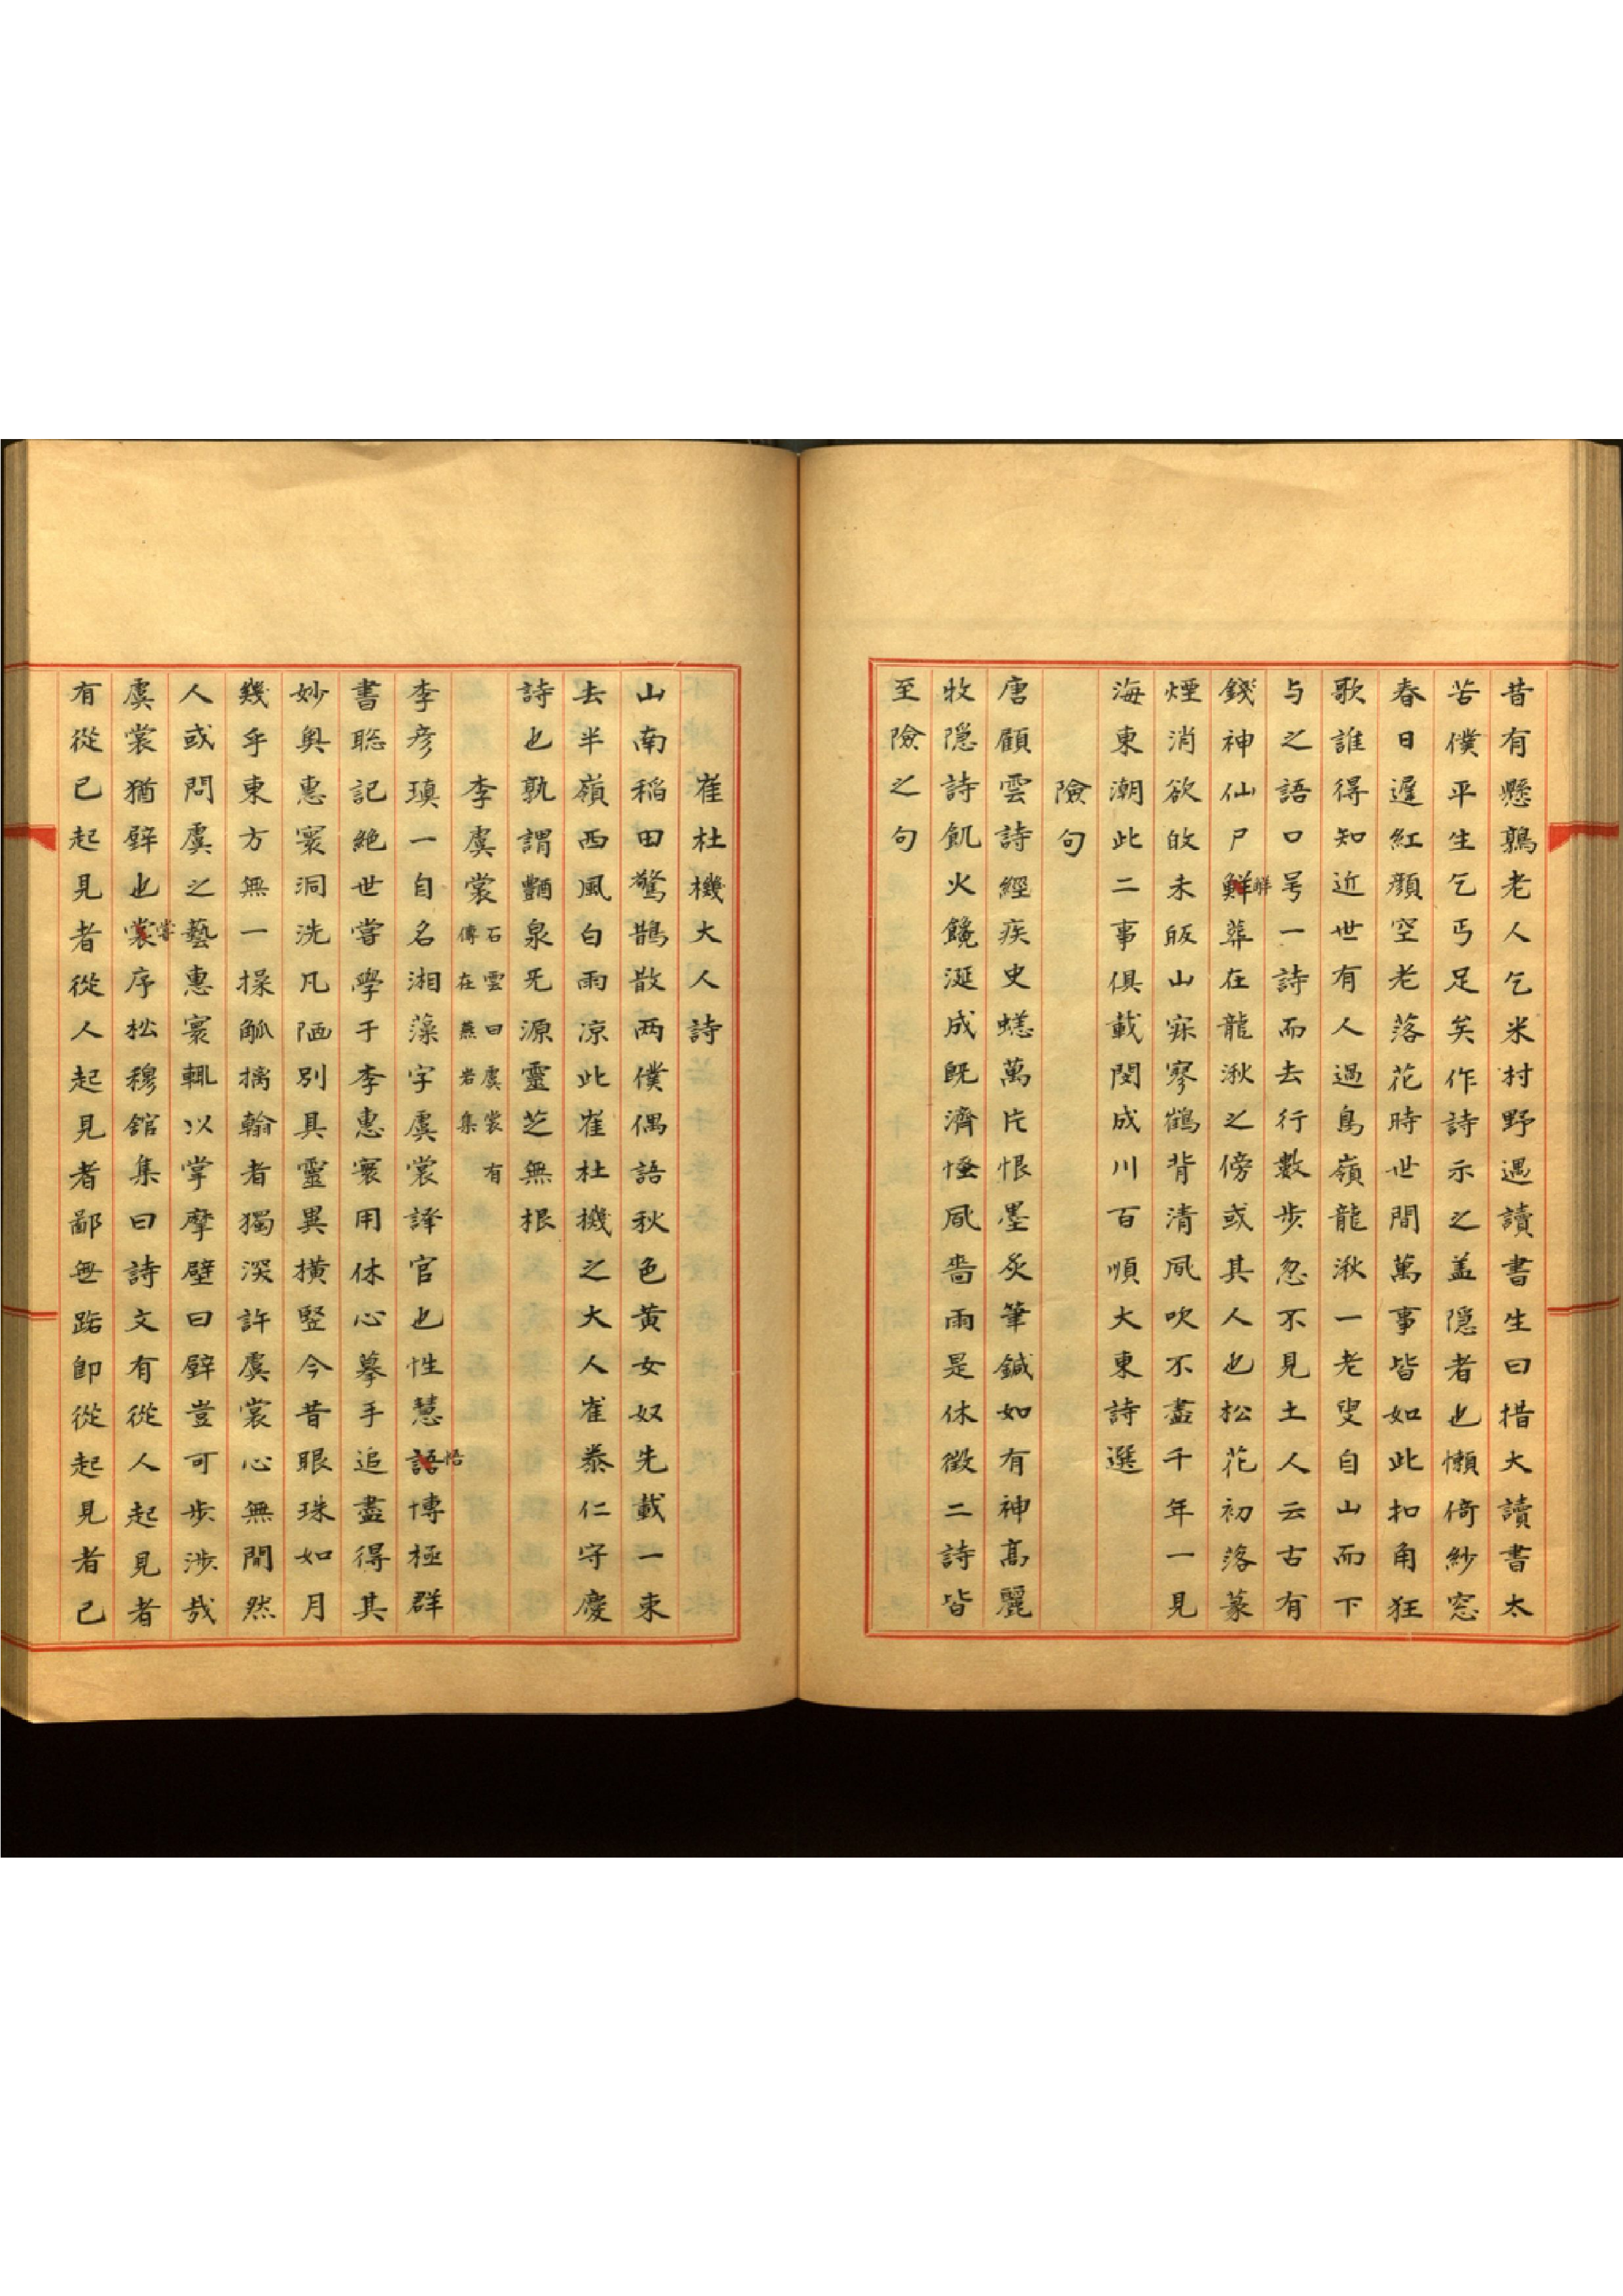 昔有懸鶉老人乞米村野遇讀書生曰措大讀書太
苦僕平生乞丐足矣作詩示之盖隱者也懶倚紗窓
春日遲紅顔空老落花時世間萬事皆如此扣角狂
歌誰得知近世有人過鳥嶺龍湫一老叟自山而下
与之語口号一詩而去行數步忽不見土人云古有
錢神仙尸鮮葬在龍湫之傍或其人也松花初落篆
解
煙消欲皈未皈山寂寥鶴背清風吹不盡千年一見
海東潮此二事俱載閔成川百順大東詩選
險句
唐顧雲詩經疾史蟋萬片恨墨炙筆鍼如有神高麗
牧隱詩飢火饞涎成旣濟慳風嗇雨是休徵二詩皆
至險之句
崔杜機大人詩
山南稲田驚鵲散兩僕偶語秋色黄女奴先載一束
去半嶺西風白雨凉此崔杜機之大人崔泰仁守慶
詩也孰謂醴泉旡源靈芝無根
李虞裳
石雲曰虞裳有
傳在燕岩集
李彦瑱一自名湘藻字虞裳譯官也性慧語博極群
悟
書聡記絶世嘗學于李惠寰用休心摹手追盡得其
妙奥惠寰洞洗凡陋別具靈異橫竪今昔眼珠如月
幾乎東方無一操觚摛翰者獨深許虞裳心無間然
人或問虞之藝惠寰輒以掌摩壁曰壁豈可步涉哉
虞裳猶壁也裳序松穆舘集曰詩文有從人起見者
嘗
有從已起見者從人起見者鄙無踮卽從起見者已